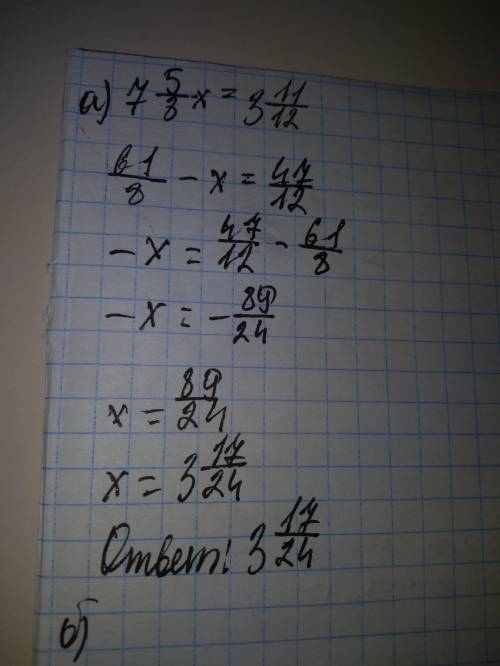 а) 7 5/8 x = 3 11/12
61/8 - x = 47/12
- x = 47/12 - 61/8
- x = - 89/24
x = 89/24
x = 3 17/24
Ответ: 3 17/24
б)